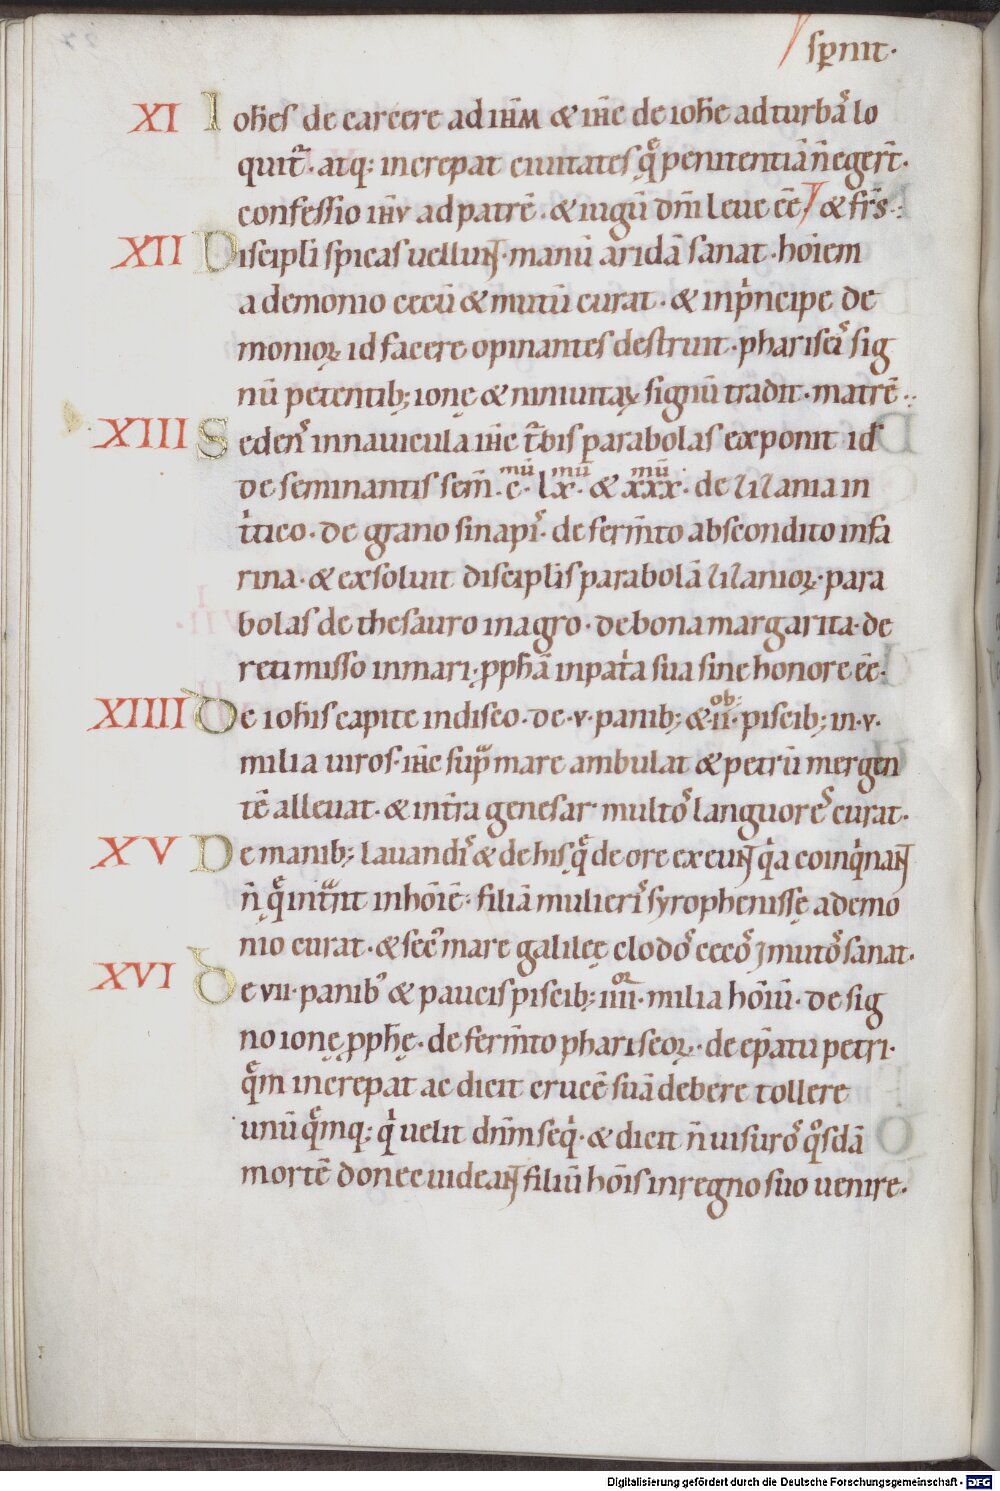 spnit.
XI Ioh̄es de carcere ad ih̄m & ih̄c de ioh̄e ad turbas lo
quit̄. atq; increpat ciuitates q̄ penitentiā n̄ egeṙt.
confessio ih̄u ad patrē. & iugū dn̄i leue eē / & frs̄.
XII Discipli spicas uellunt. manū aridā sanat. hoīem
a demonio cecū & mutū curat. & in pͥncipe de
monioꝝ id facere opinantes destruit. phariseis sig
nū petentib; ionę & niniuitaꝝ signū tradit. matrē
XIII Sedens in nauicula ih̄c t̄bis parabolas exponit id
de seminantis sem̄. c. lx. & xxx. de zizania in
mū mū mū
tͥtico. de grano sinapis. de ferm̄to abscondito in fa
rina. & exsoluit disciplis parabolā zizanioꝝ. para
bolas de thesauro in agro. de bona margarita. de
reti misso in mari. pph̄ā in patͥa sua sine honore eē.
XIIII De ioh̄is capite in disco. de .v. panib; & .ii. piscib; in .v.
ob;
milia uiros. ih̄c sup mare ambulat & petrū mergen
tē alleuat. & in t̄ra genesar multos languores curat.
XV De manib; lauandis & de his q̄ de ore exeunt qͥa coinqͥnant
n̄ q̄ intnt in hoīē. filiā mulieris syrophenissę a demo
nio curat. & sec᷒ mare galileę clodos cecos ⁊ mutos sanat.
XVI De vii. panib᷒ & paucis piscib; iiii. milia hoīū. de sig
or
no ionę pphę̄. de ferm̄to phariseoꝝ. de ep̄atu petri.
q̄m increpat ac dicit crucē suā debere tollere
unū q̄mq; qͥ uelit dn̄m seqͥ. & dicit n̄ uisuros qͦsdā
mortē donec uideant filiū hoīs in regno suo uenire.
Digitalisierung gefördert durch die Deutsche Forschungsgemeinschaft - DFG